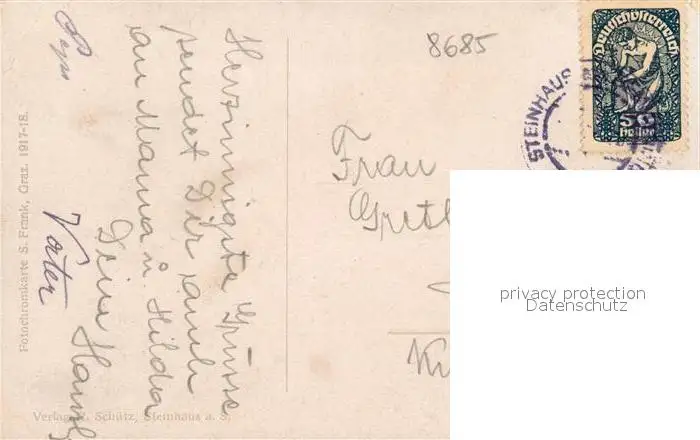 8685
Deutschösterreich
50
Heller
STEINHAUS
Herzinnigste Grüsse
sendet Dir auch
an Mama u. Hilda
Dein
Vater
Frau
Gretl
privacy protection
Datenschutz
Fotochromkarte S. Frank, Graz. 1917-18.
Verlag Schütz, Steinhaus a. S.